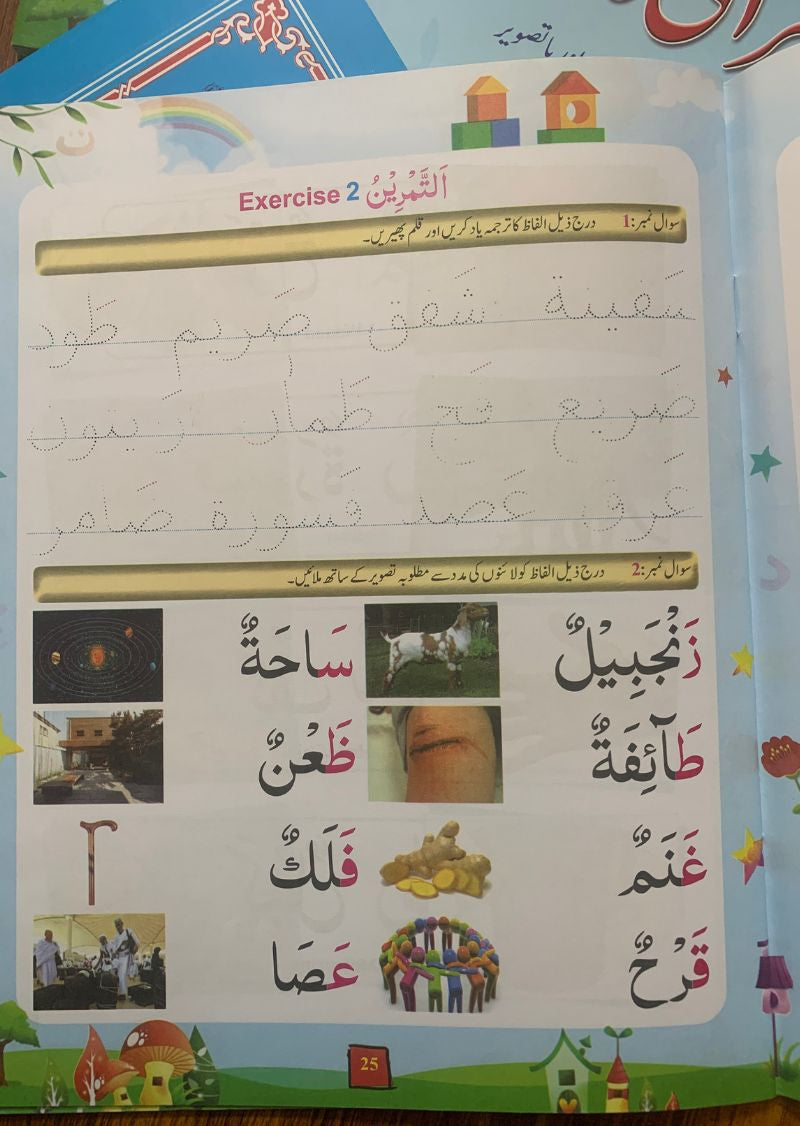 اور با تصویر
Exercise 2 اَلتَّمْرِیْنُ
سوال نمبر:1 درج ذیل الفاظ کا ترجمہ یاد کریں اور قلم پھیریں۔
سَفینة شَفق صَریم طَود
ضَریع فَج ظَمان زَیتون
عَرَق عَضد قَسورة ضَامر
سوال نمبر:2 درج ذیل الفاظ کو لائنوں کی مدد سے مطلوبہ تصویر کے ساتھ ملائیں۔
زَنْجَبِيْلٌ سَاحَةٌ
طَآئِفَةٌ ظَعْنٌ
غَنَمٌ فَلَكٌ
قَرْحٌ عَصَا
25